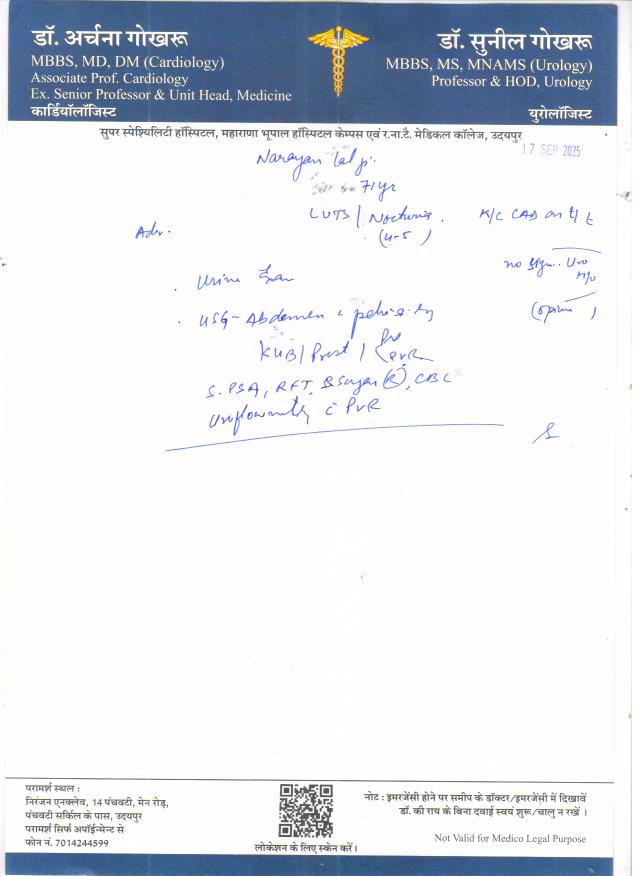 डॉ. अर्चना गोखरू
MBBS, MD, DM (Cardiology)
Associate Prof. Cardiology
Ex. Senior Professor & Unit Head, Medicine
कार्डियॉलॉजिस्ट
डॉ. सुनील गोखरू
MBBS, MS, MNAMS (Urology)
Professor & HOD, Urology
युरोलॉजिस्ट
सुपर स्पेश्यिलिटी हॉस्पिटल, महाराणा भूपाल हॉस्पिटल केम्पस एवं र.ना.टै. मेडिकल कॉलेज, उदयपुर
17 SEP 2025
Narayan Lal ji
71yr
LUTS / Nocturia. K/C CAD on t/t
Adv. (4-5)
no sign. Uro H/o
. Urine Exam
. USG - Abdomen c pelvis
KUB / Prost / Pre PVR
S. PSA, RFT, B sugar (R), CBC
Uroflowmetry c PVR
परामर्श स्थल :
निरंजन एनक्लेव, 14 पंचवटी, मेन रोड़,
पंचवटी सर्किल के पास, उदयपुर
परामर्श सिर्फ अपॉईन्मेंट से
फोन नं. 7014244599
लोकेशन के लिए स्केन करें।
नोट : इमरजेंसी होने पर समीप के डॉक्टर/इमरजेंसी में दिखावें
डॉ. की राय के बिना दवाई स्वयं शुरू/चालु न रखें ।
Not Valid for Medico Legal Purpose